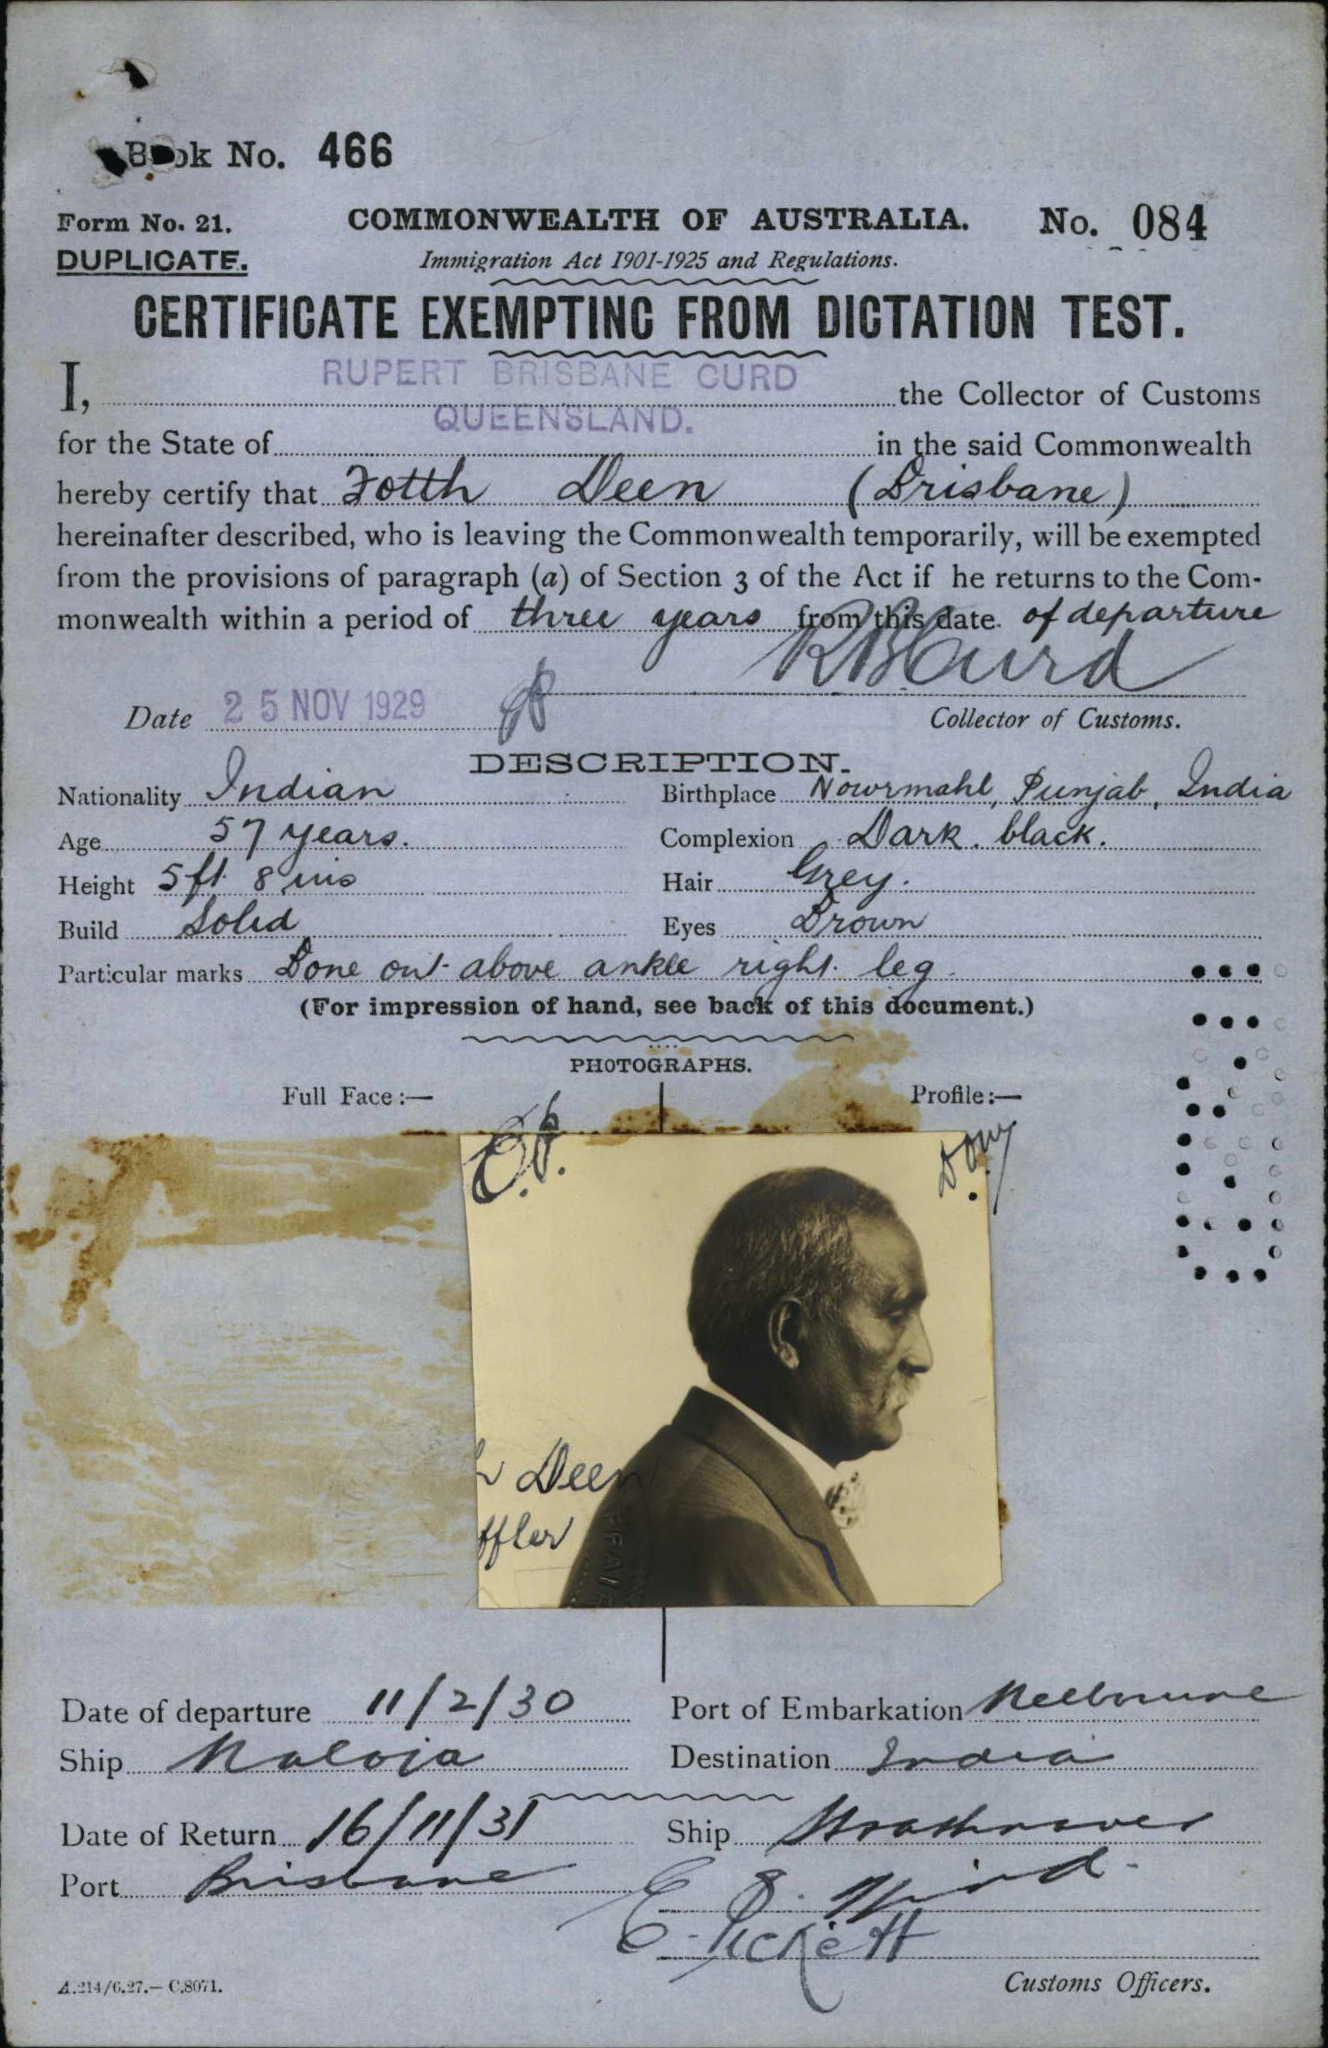 Book No. 466
Form No. 21. COMMONWEALTH OF AUSTRALIA. No. 084
DUPLICATE. Immigration Act 1901-1925 and Regulations.
CERTIFICATE EXEMPTING FROM DICTATION TEST.
I, RUPERT BRISBANE CURD the Collector of Customs
for the State of QUEENSLAND. in the said Commonwealth
hereby certify that Fotth Deen (Brisbane)
hereinafter described, who is leaving the Commonwealth temporarily, will be exempted
from the provisions of paragraph (a) of Section 3 of the Act if he returns to the Com-
monwealth within a period of three years from this date of departure
R B Curd
Date 25 NOV 1929 Collector of Customs.
DESCRIPTION.
Nationality Indian Birthplace Nowrmahl, Punjab, India
Age 57 years. Complexion Dark. black.
Height 5ft 8 ins Hair Grey.
Build Solid Eyes Brown
Particular marks Bone out above ankle right leg.
(For impression of hand, see back of this document.)
PHOTOGRAPHS.
Full Face:— Profile:—
Deen
ffler
Date of departure 11/2/30 Port of Embarkation Melbourne
Ship Maloja Destination India
Date of Return 16/11/31 Ship Strathnaver
Port Brisbane
E. Pickett
A.214/6.27.—C.8071. Customs Officers.